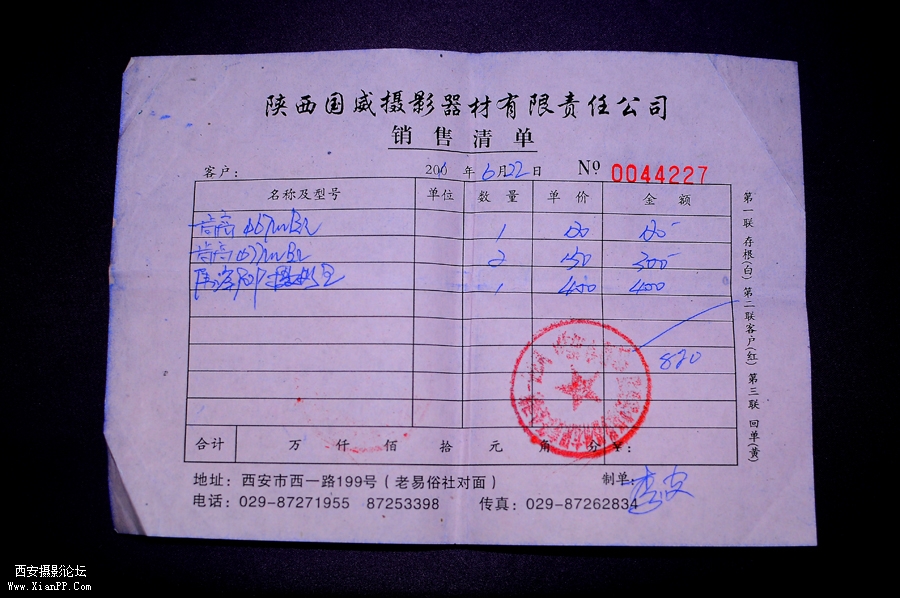 陕西国威摄影器材有限责任公司
销售清单
客户: 200 年 6 月 22 日 Nº 0044227
名称及型号 单位 数量 单价 金额
肯高 1 120 120
肯高 2 150 300
1 400 400
820
合计 万 仟 佰 拾 元 角 分 ¥:
地址: 西安市西一路199号(老易俗社对面) 制单: 李安
电话: 029-87271955 87253398 传真: 029-87262834
第一联 存根(白) 第二联客户(红) 第三联 回单(黄)
西安摄影论坛
Www.XianPP.Com